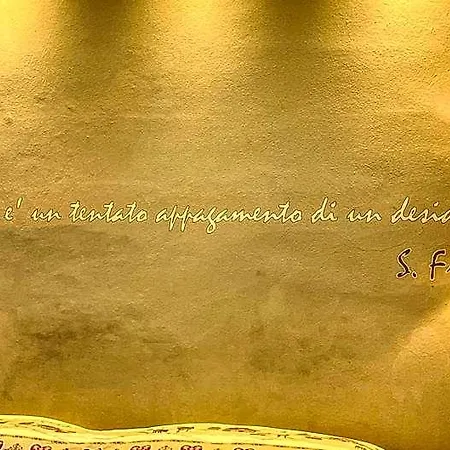 e' un tentato appagamento di un desid
S. F